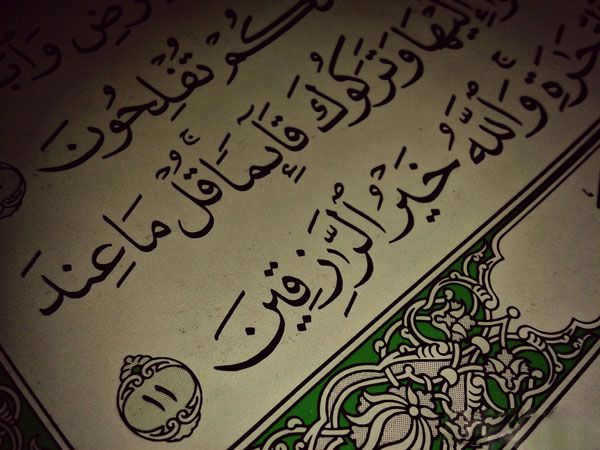 رْضِ وَٱبْ
كُمْ تُفْلِحُونَ
إِلَيْهَا وَتَرَكُوكَ قَآئِمًا قُلْ مَا عِندَ
جَٰرَةِ وَٱللَّهُ خَيْرُ ٱلرَّٰزِقِينَ
١١